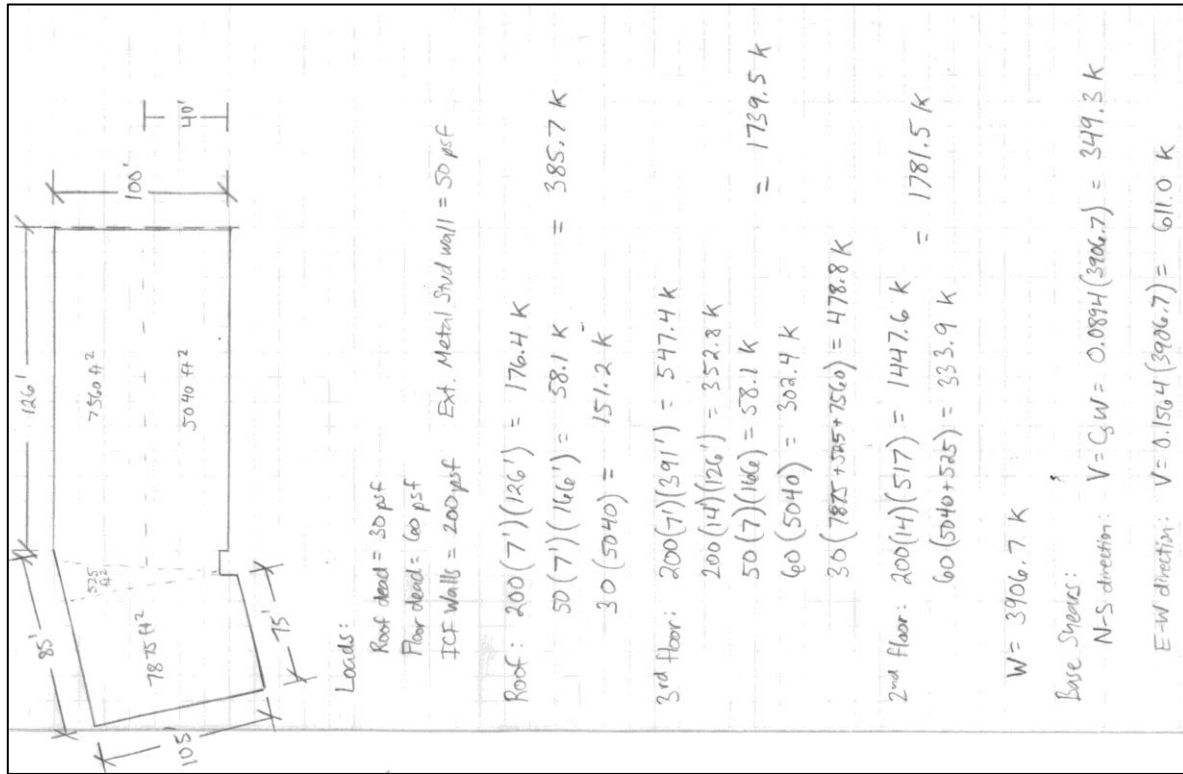 126'
85'
100'
40'
7560 ft²
525 ft²
7875 ft²
5040 ft²
105'
75'
Loads:
Roof dead = 30 psf
Floor dead = 60 psf
ICF Walls = 200 psf Ext. Metal Stud wall = 50 psf
Roof: 200(7')(126') = 176.4 K
50(7')(166') = 58.1 K = 385.7 K
30(5040) = 151.2 K
3rd floor: 200(7')(391') = 547.4 K
200(14')(126') = 352.8 K
50(7)(166) = 58.1 K = 1739.5 K
60(5040) = 302.4 K
30(7875+525+7560) = 478.8 K
2nd floor: 200(14)(517) = 1447.6 K = 1781.5 K
60(5040+525) = 333.9 K
W = 3906.7 K
Base Shears:
N-S direction: V = CsW = 0.0894(3906.7) = 349.3 K
E-W direction: V = 0.1564(3906.7) = 611.0 K